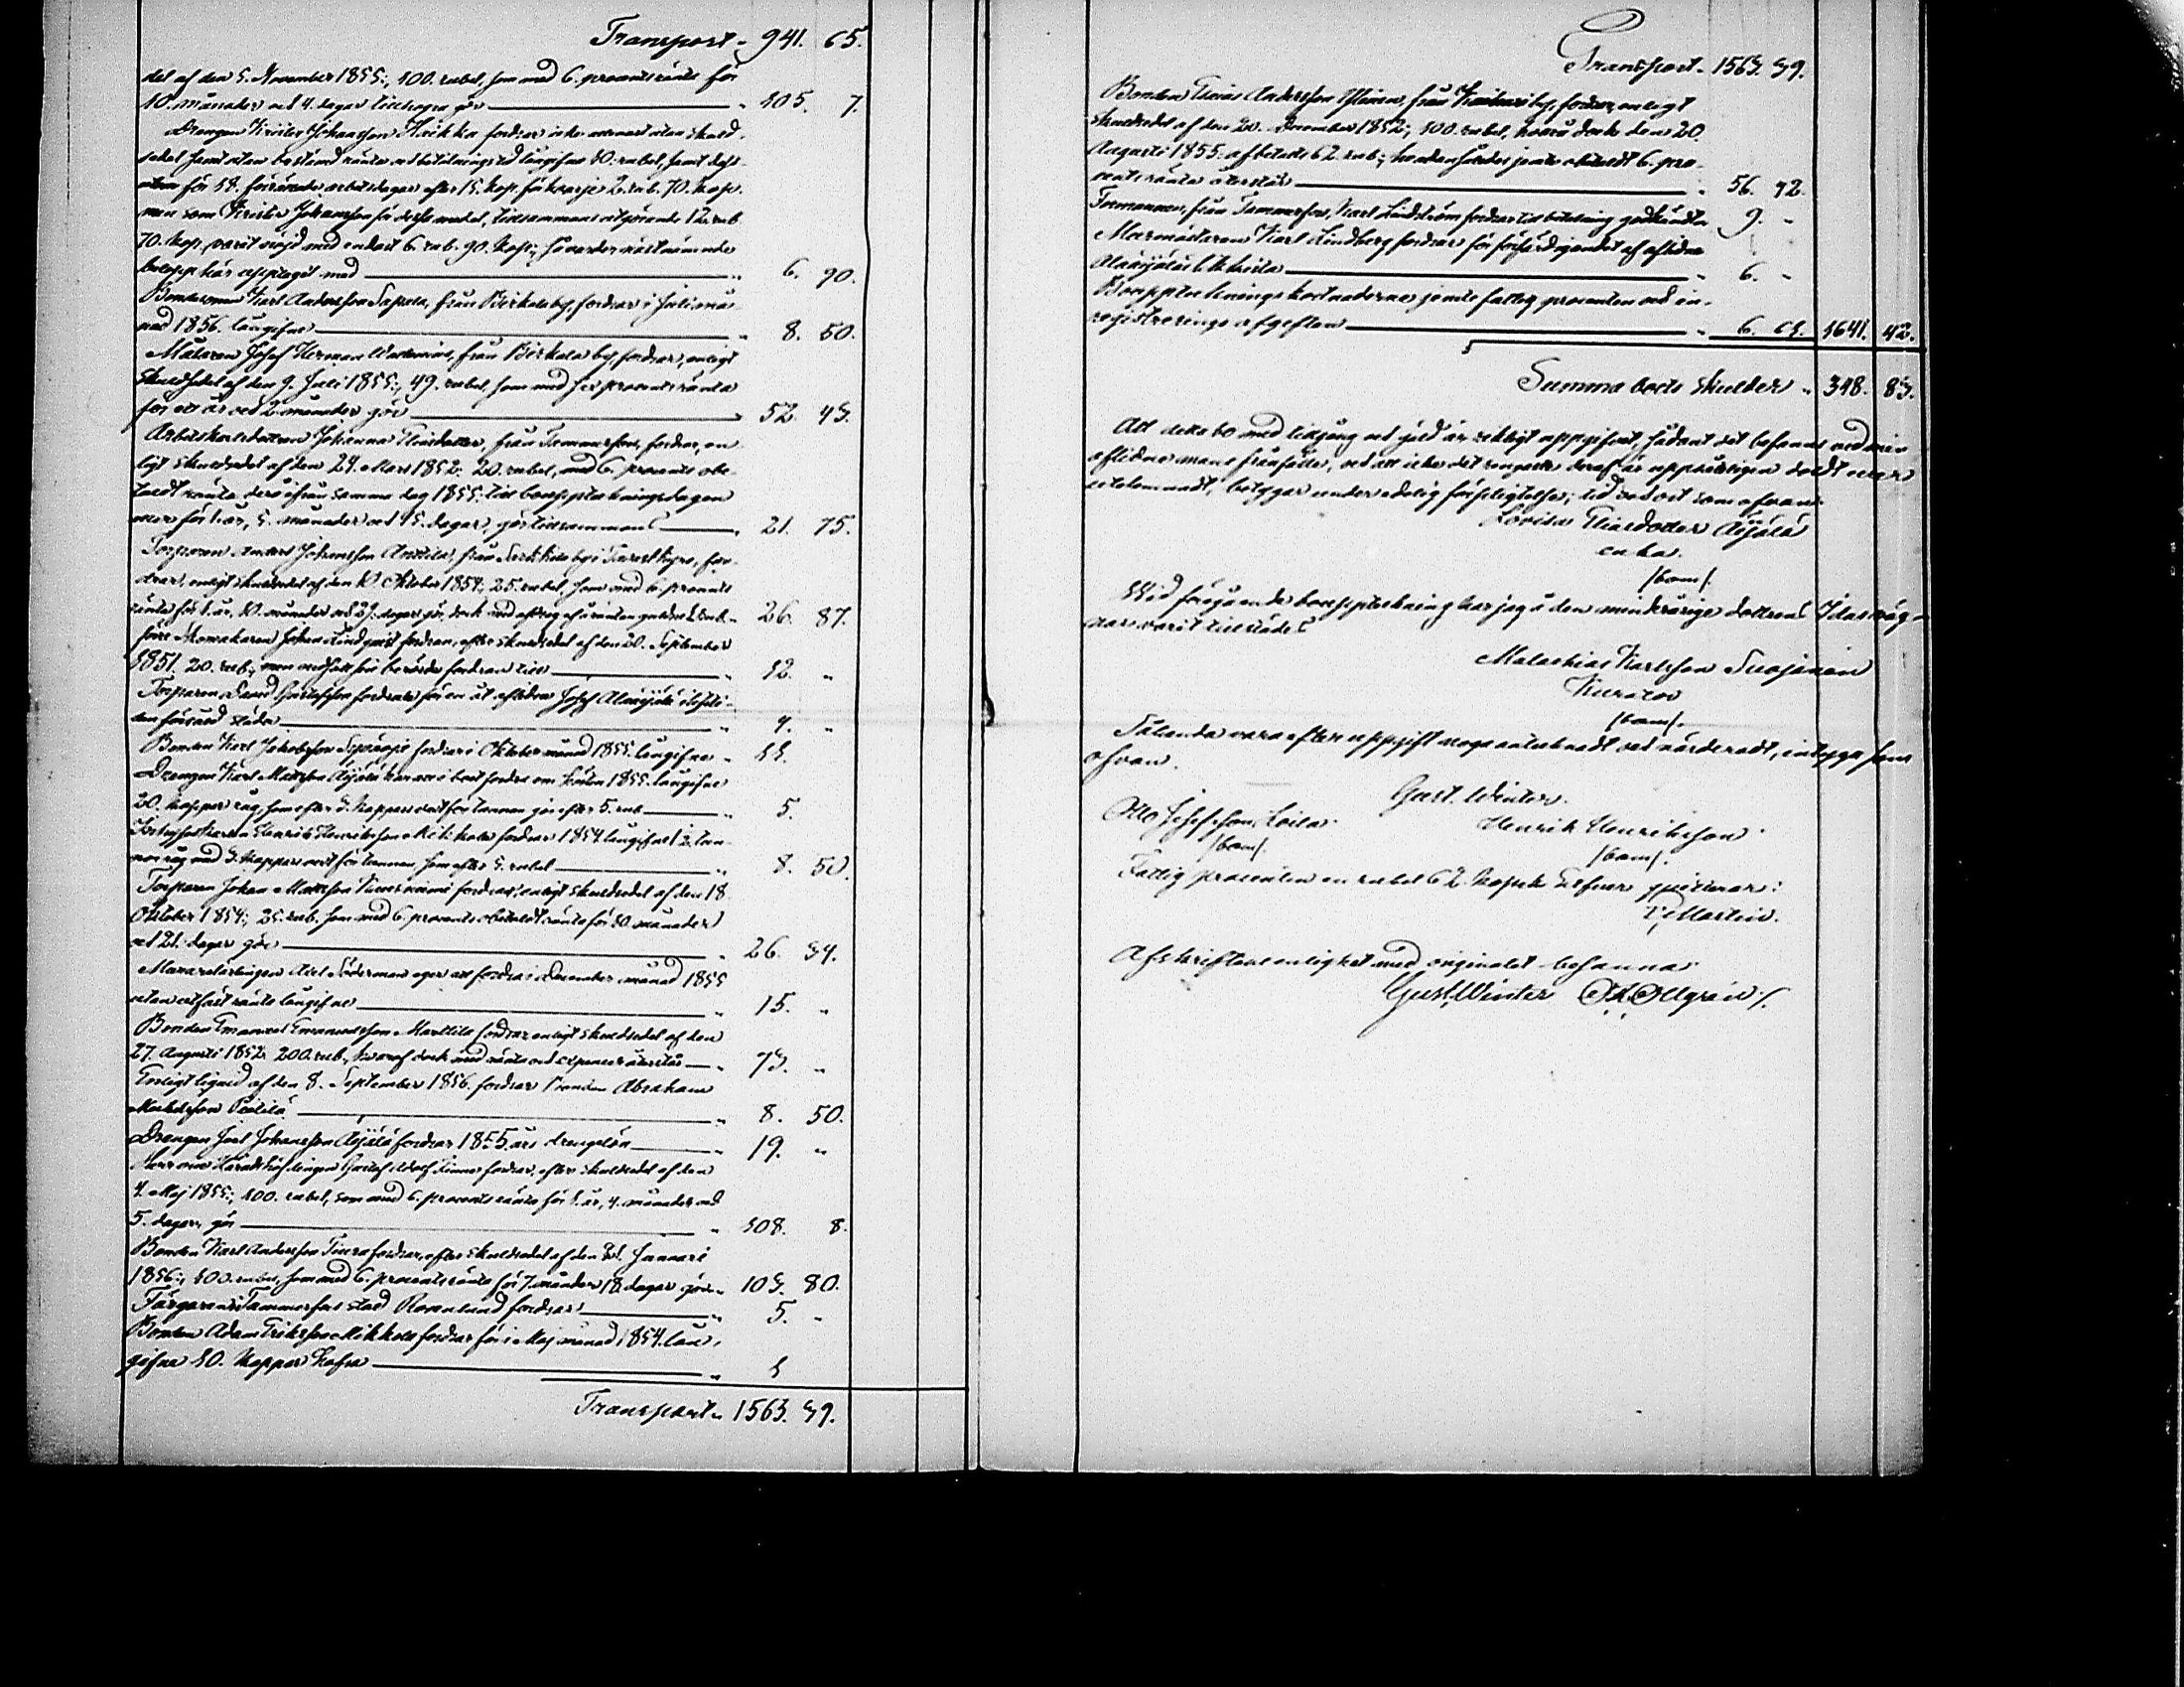 Transport „ 941. 65.
del af den 5. November 1855; 100. rubel, som med 6. procents ränta för
10. månader och 4. dagar tillhopa gör „ 105. 7.
Drengen Krister Johansson Haikka fordrar
sedel samt utan bestämd ränta och betalningstid långifne 10. rubel, samt dess-
utom för 18. förrättade arbetsdagar efter 15. kop. för hvarje 2. rub. 70. kop.
men som Krister Johansson för dessa medel, tillsammans utgörande 12. rub.
70. kop., varit nöjd med endast 6. rub. 90. kop.; så varder nästnämnde
belopp här upptaget med „ 6. 90.
Bondesonen Karl Andersson Sapala, från Birkala by, fordrar i Julii må-
nad 1856. långifne „ 8. 50.
Målaren Josef Herman från Birkala by, fordrar, enligt
skuldsedel af den 9. Juli 1855; 49. rubel, som med sex procents ränta
för ett år och 2 månader gör „ 52. 43.
Arbetskarlsdottren Johanna Eliædotter, från Tammerfors, fordrar, en-
ligt skuldsedel af den 24. Mars 1852; 20. rubel, med 6. procents obe-
taldt ränta derå ifrån samma dag 1855. till bouppteckningsdagen
eller för 1. år, 5. månader och 15. dagar, gör tillsammans „ 21. 75.
Torparen Anders Johansson Anttila, från by i Tavastkyro, for-
drar, enligt skuldsedel af den 10. Oktober 1854; 25. rubel, som med 6. procents
ränta för 1. år, 10. månader och 29. dagar gör, dock med afdrag af å räntan guldne 1. rub. „ 26. 87.
förre Skomakaren Johan Lindqvist fordran, efter skuldsedel af den 20. September
1851. 20. rub.; men nedsatt sin berörde fordran till „ 12. „
Torparen David Gustafsson fordrar för en åt aflidne Josef Alaäijälä
den försåld släde „ 4. „
Bonden Karl Jakobsson fordrar i Oktober månad 1855. långifne „ 11.
Drengen Karl Mattsson Äijälä har att i boet fordra om hösten 1855. långifne
20. kappar råg, som efter 3. kappars rast för tunnan gör efter 5. rub. „ 5.
Henrik Henriksson Mikkola fordrar 1854. långifne 1 1/2 tun-
nor råg med 3. kappars rast för tunnan, som efter 5. rubel „ 8. 50.
Torparen Johan Mattsson fordrar, enligt skuldsedel af den 18.
Oktober 1854; 25. rub. som med 6. procents obetaldt ränta för 10. månader
och 21. dagar gör „ 26. 34.
Murarelärlingen Axel Söderman eger att fordra i December månad 1855
utan utfäst ränta långifne „ 15. „
Bonden Emanuel Emanuelsson Marttila fordrar enligt skuldsedel af den
27. Augusti 1852. 200. rub., hvaraf dock med ränta och expenser återstår „ 73. „
Enligt liquid af den 8. September 1856. fordrar Bonden Abraham
„ 8. 50.
Drengen Joel Johansson Äijälä fordrar 1855. års drengelön „ 19. „
Herr vice Häradshöfdingen Gustaf Adolf fordrar, efter skuldsedel af den
4. Maj 1855; 100. rubel, som med 6. procents ränta för 1. år, 4. månader och
5. dagar, gör „ 108. 8.
Bonden Karl Andersson fordrar, efter skuldsedel af den 21. Januari
1856; 100. rubel, som med 6. procents ränta för 7. månader 18. dagar gör „ 103. 80.
Färgaren i Tammerfors stad Rosenlund fordrar „ 5. „
Bonden Adam Eriksson Mikkola fordrar för i Maj månad 1854. lån-
gifne 10. kappar hafra „ 1
Transport „ 1563. 39.
Transport „ 1563. 39.
Bonden Andersson från by, fordrar, enligt
skuldsedel af den 20. December 1852; 100. rubel, hvarå dock den 20.
Augusti 1855. afbetalts 62. rub.; hvadan jemte obetaldt 6. pro-
cents ränta återstår „ 56. 42.
Formannen, från Tammerfors, Karl Lindström fordrar till betalning godkändt „ 9. „
Murmästaren Karl Lindberg fordrar för förfärdigandet af aflidne
Alaäijäläs likkista „ 6. „
Bouppteckningskostnaderne jemte fattig procenten och in-
registrerings afgiften „ 6. 61. 1641. 42.
Summa boets skulder „ 348. 83.
Att detta bo med tillgång och gäld är riktigt uppgifvet, sådant det befanns vid min
aflidne mans frånfälle, och att icke det ringaste deraf är uppsåtligen doldt eller
utelemnadt, betygar under edelig förpligtelse; tid och ort som ofvan.
Lovisa Eliædotter Äijälä
enka.
/bom/.
Vid föregående bouppteckning har jag å den minderåriga dottren Idas väg-
nar varit tillstädes
Malachias Karlsson Suojanen
Kurator
/bom/.
Sålunda vara efter uppgift noga antecknadt och värderadt, intyga som
ofvan.
Gust. Winter.
Otto Josefsson Loila Henrik Henriksson
/bom/. /bom/.
Fattig procenten en rubel 62. kopek Silfver qvitterar:
Martin.
Afskriftens enlighet med originalet befanna:
Gust. Winter